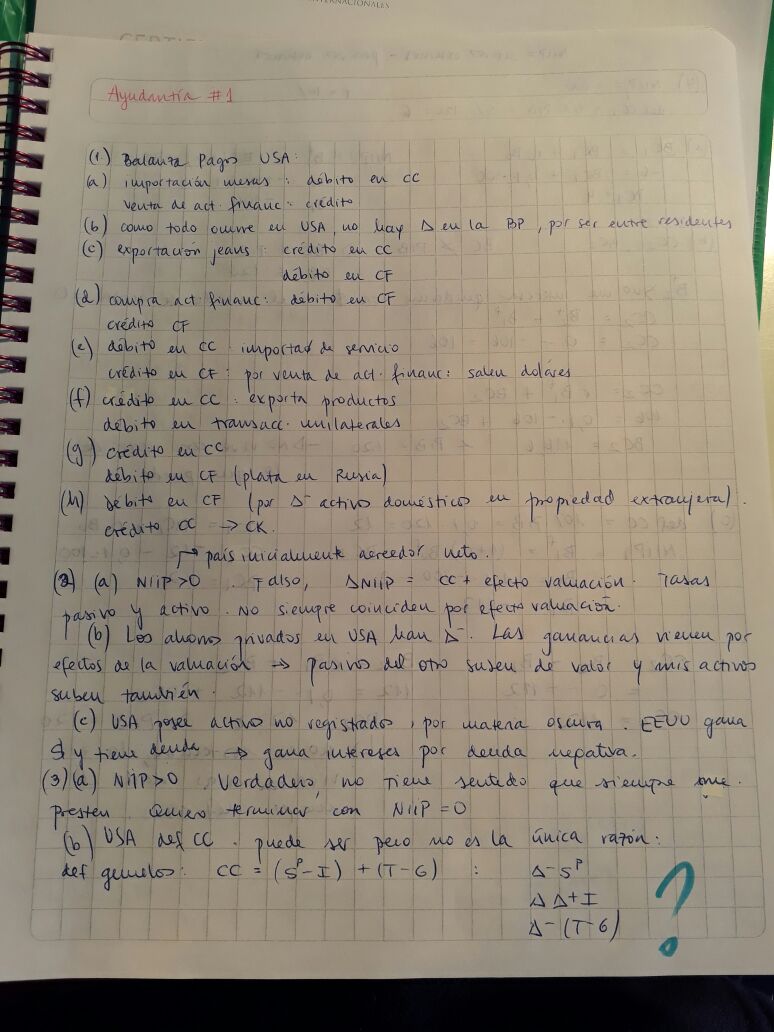 INTERNACIONALES
Ayudantía #1
(1.) Balanza Pagos USA:
(a) importación mesas : débito en CC
venta de act. financ : crédito
(b) como todo ocurre en USA, no hay Δ en la BP, por ser entre residentes
(c) exportación jeans : crédito en CC
débito en CF
(d) compra act financ: débito en CF
crédito CF
(e) débito en CC : importad de servicio
crédito en CF : por venta de act. financ: salen dólares
(f) crédito en CC : exporta productos
débito en transacc. unilaterales
(g) crédito en CC
débito en CF (plata en Rusia)
(h) débito en CF (por Δ⁻ activo doméstico en propiedad extranjera).
crédito CC → CK.
→ país inicialmente acreedor neto.
(2) (a) NIIP>0 . Falso, ΔNIIP = CC + efecto valuación. Tasas
pasivo y activo. No siempre coinciden por efecto valuación.
(b) Los ahorros privados en USA han Δ⁻. Las ganancias vienen por
efectos de la valuación → pasivos del otro suben de valor y mis activos
suben también.
(c) USA posee activo no registrados, por materia oscura. EEUU gana
$ y tiene deuda → gana intereses por deuda negativa.
(3)(a) NIIP>0. Verdadero, no tiene sentido que siempre me
presten. Quiero terminar con NIIP=0
(b) USA def CC. puede ser pero no es la única razón:
def gemelos: CC = (Sᴾ-I) + (T-G) : Δ⁻Sᴾ
Δ Δ⁺I
Δ⁻(T-G)
?